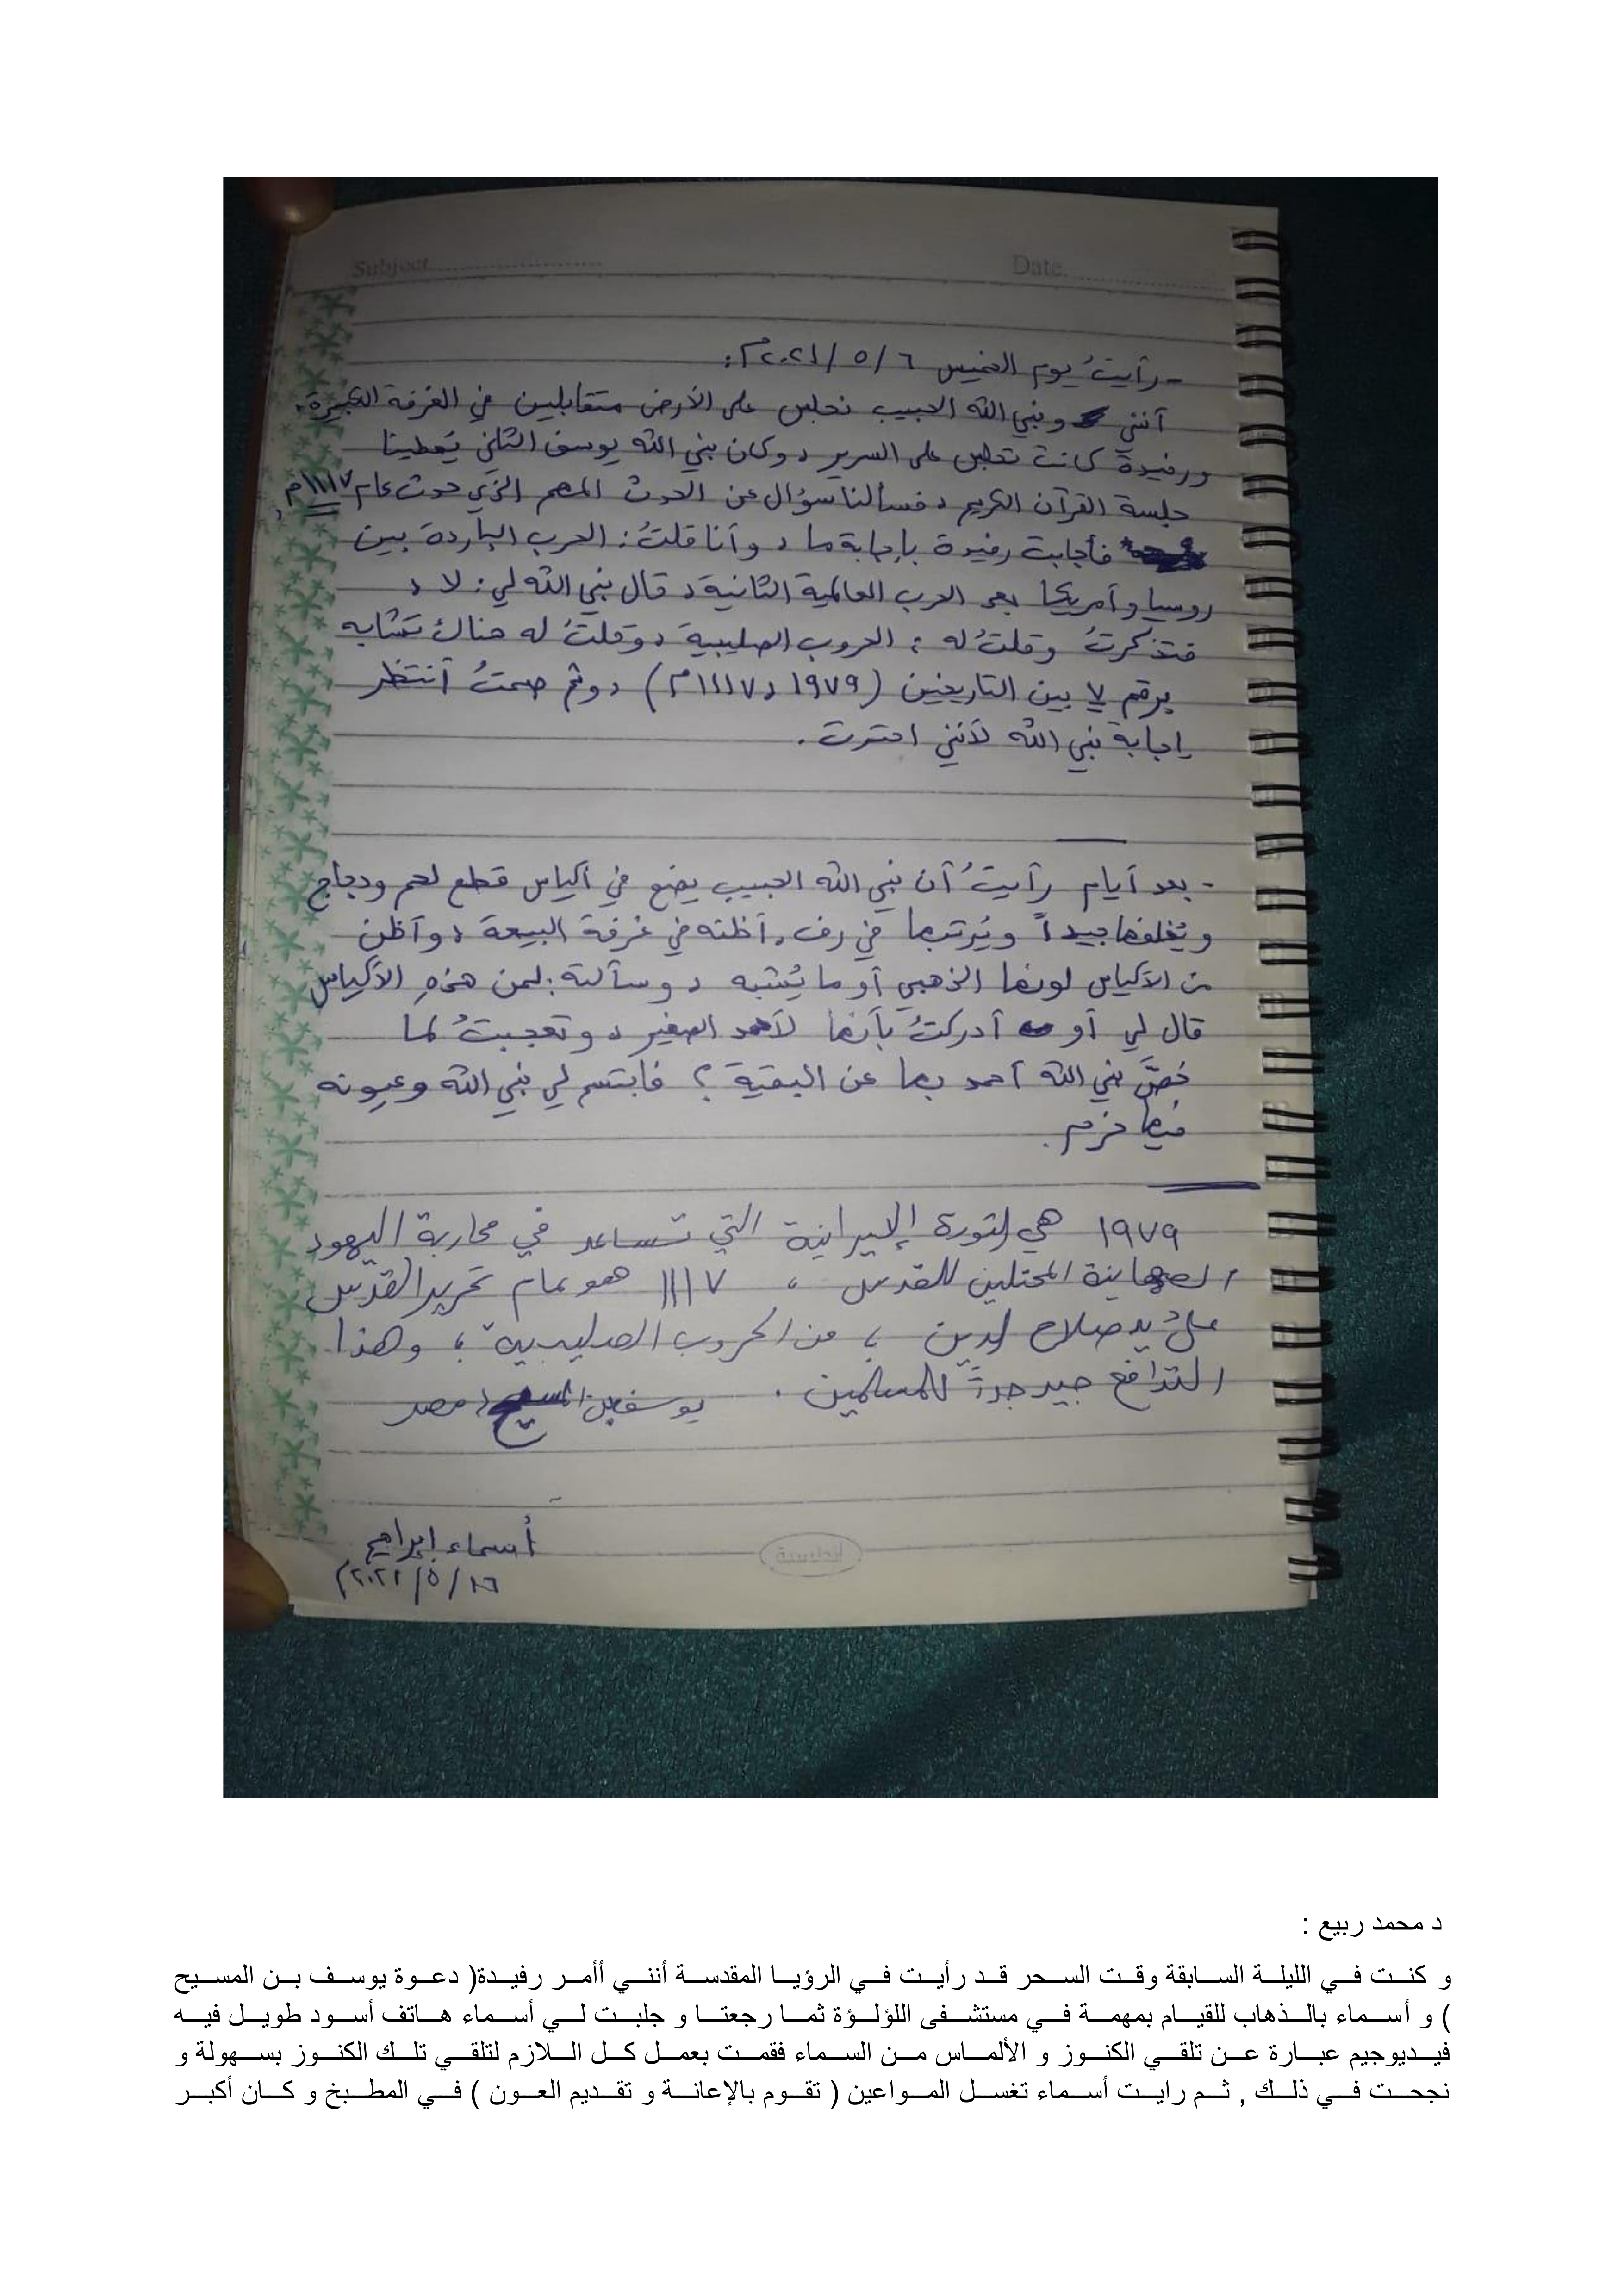 Subject
Date
- رأيتُ يوم الخميس ٦ / ٥ / ٢٠٢١م :
أنني ونبي الله الحبيب نجلس على الأرض متقابلين في الغرفة الكبيرة،
ورفيدة كانت تجلس على السرير، وكان نبي الله يوسف الثاني يُعطينا
جلسة القرآن الكريم، فسألنا سؤال عن الحدث المهم الذي حدث عام ١١١٧م،
فأجابت رفيدة بإجابة ما، وأنا قلتُ: الحرب الباردة بين
روسيا وأمريكا بعد الحرب العالمية الثانية، قال نبي الله لي: لا،
فتذكرتُ وقلتُ له: الحروب الصليبية، وقلتُ له هناك تشابه
برقم ٧ بين التاريخين (١٩٧٩، ١١١٧م)، وثم صمتُ أنتظر
إجابة نبي الله لأنني احترت.
- بعد أيام رأيتُ أن نبي الله الحبيب يضع في أكياس قطع لحم ودجاج
ويُغلفها جيداً ويُرتبها في رف، أظنه في غرفة البيعة، وأظن
من الأكياس لونها الذهبي أو ما يُشبه، وسألته: لمن هذهِ الأكياس
قال لي أو أدركتُ بأنها لأحمد الصغير، وتعجبتُ لما
خصَّ نبي الله أحمد بها عن البقية؟ فابتسم لي نبي الله وعيونه
فيها حزم.
١٩٧٩ هي الثورة الإيرانية التي تساعد في محاربة اليهود
الصهاينة المحتلين للقدس، ١١١٧ هو عام تحرير القدس
على يد صلاح الدين، من الحروب الصليبية، وهذا
التدافع جيد جداً للمسلمين. يوسف بن المسيح، مصر
أسماء إبراهيم
١٦/٥/٢٠٢١م
د محمد ربيع :
و كنت في الليلة السابقة وقت السحر قد رأيت في الرؤيا المقدسة أنني أأمر رفيدة( دعوة يوسف بن المسيح
) و أسماء بالذهاب للقيام بمهمة في مستشفى اللؤلؤة ثما رجعتا و جلبت لي أسماء هاتف أسود طويل فيه
فيديوجيم عبارة عن تلقي الكنوز و الألماس من السماء فقمت بعمل كل اللازم لتلقي تلك الكنوز بسهولة و
نجحت في ذلك , ثم رايت أسماء تغسل المواعين ( تقوم بالإعانة و تقديم العون ) في المطبخ و كان أكبر